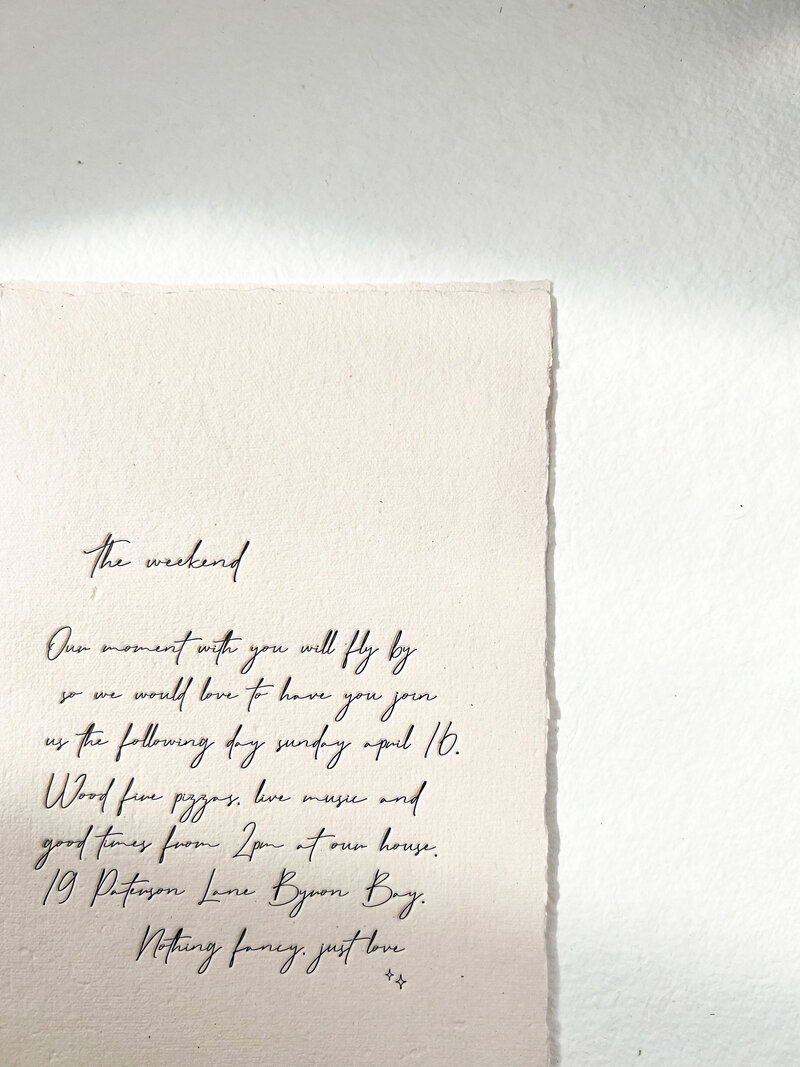 the weekend
Our moment with you will fly by
so we would love to have you join
us the following day sunday april 16.
Wood fire pizzas, live music and
good times from 2pm at our house.
19 Paterson Lane Byron Bay.
Nothing fancy, just love